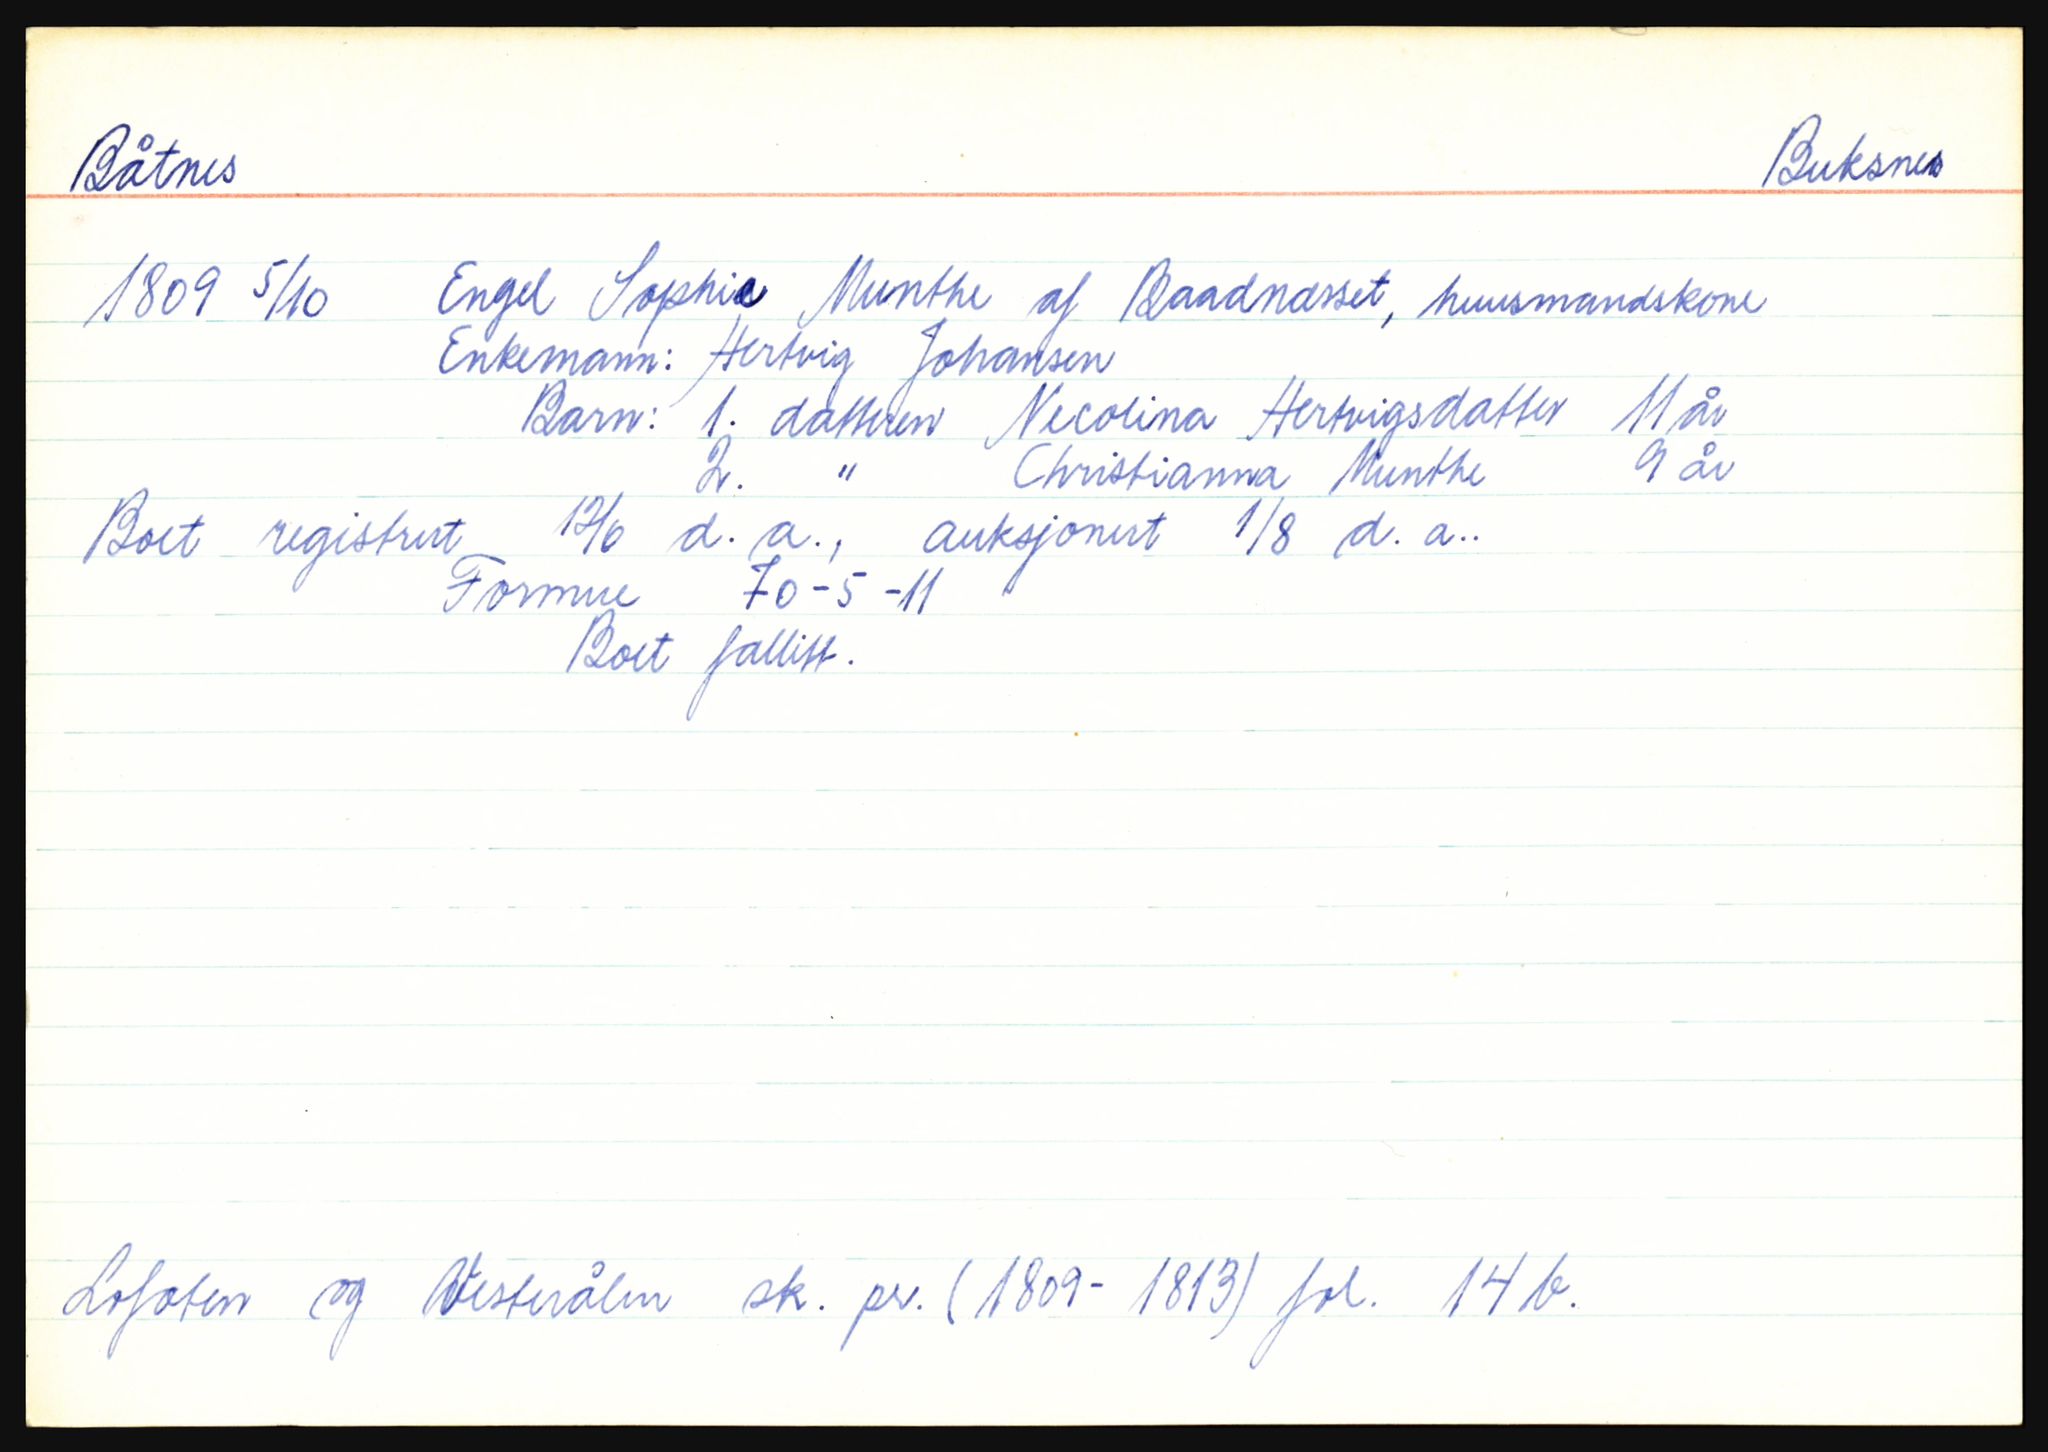 Båtnes Buksnes
1809 5/10 Engel Sophie Munthe af Baadnæsset, huusmandskone
Enkemann: Hertvig Johansen
Barn: 1. datteren Necolina Hertvigsdatter 11 år
2. " Christianna Munthe 9 år
Boet registrert 12/6 d. a., auksjonert 1/8 d. a..
Formue 70-5-11
Boet fallitt.
Lofoten og Vesterålen sk. pr. (1809-1813) fol. 14 b.